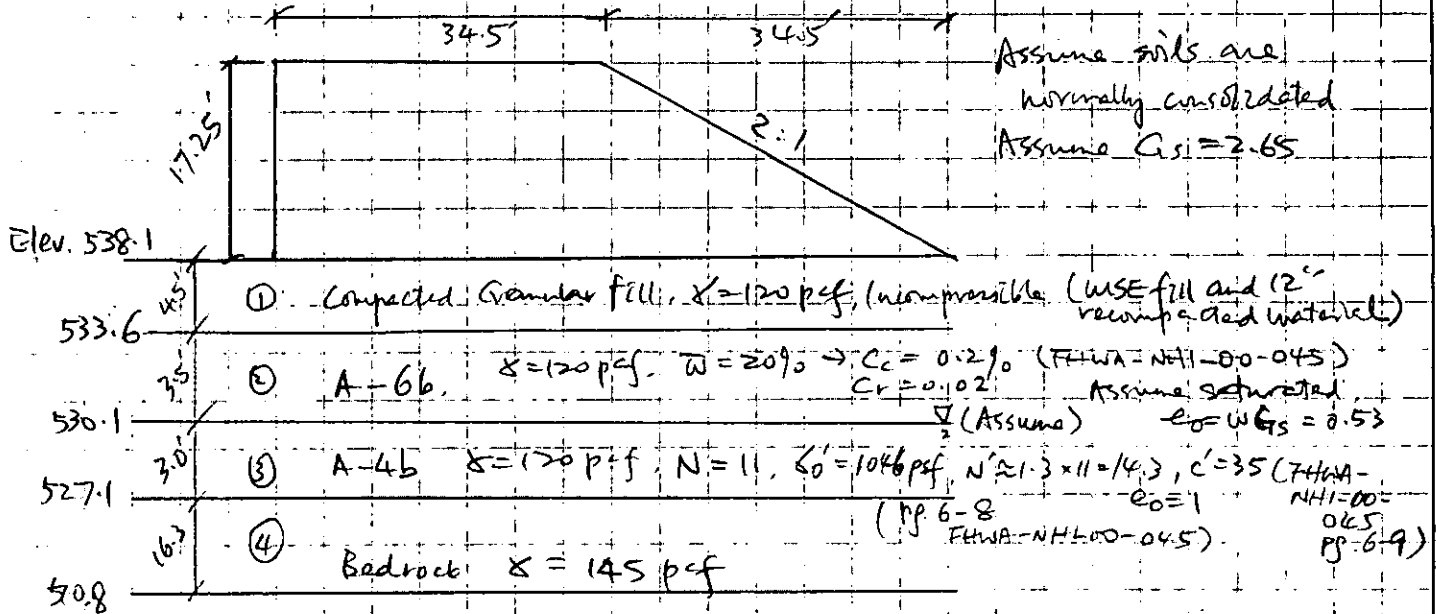 34.5' 34.5'
Assume soils are
normally consolidated
Assume Gs=2.65
17.25'
2:1
Elev. 538.1
4.5' ① Compacted Granular fill, γ=120 pcf, Incompressible (MSE fill and 12"
recompacted material)
533.6
3.5' ② A-6b, γ=120 pcf. w=20% → Cc = 0.2% (FHWA-NHI-00-045)
Cr = 0.02 Assume saturated.
530.1 (Assume) e₀=wGs = 0.53
3.0' ③ A-4b γ=120 pcf. N=11. σ₀'=1046 psf, N'≈1.3×11=14.3, c'=35 (FHWA-
NHI-00-
045
pg. 6-9)
527.1 e₀=1
(pg. 6-8
FHWA-NHI-00-045).
16.3 ④
Bedrock γ = 145 pcf
510.8